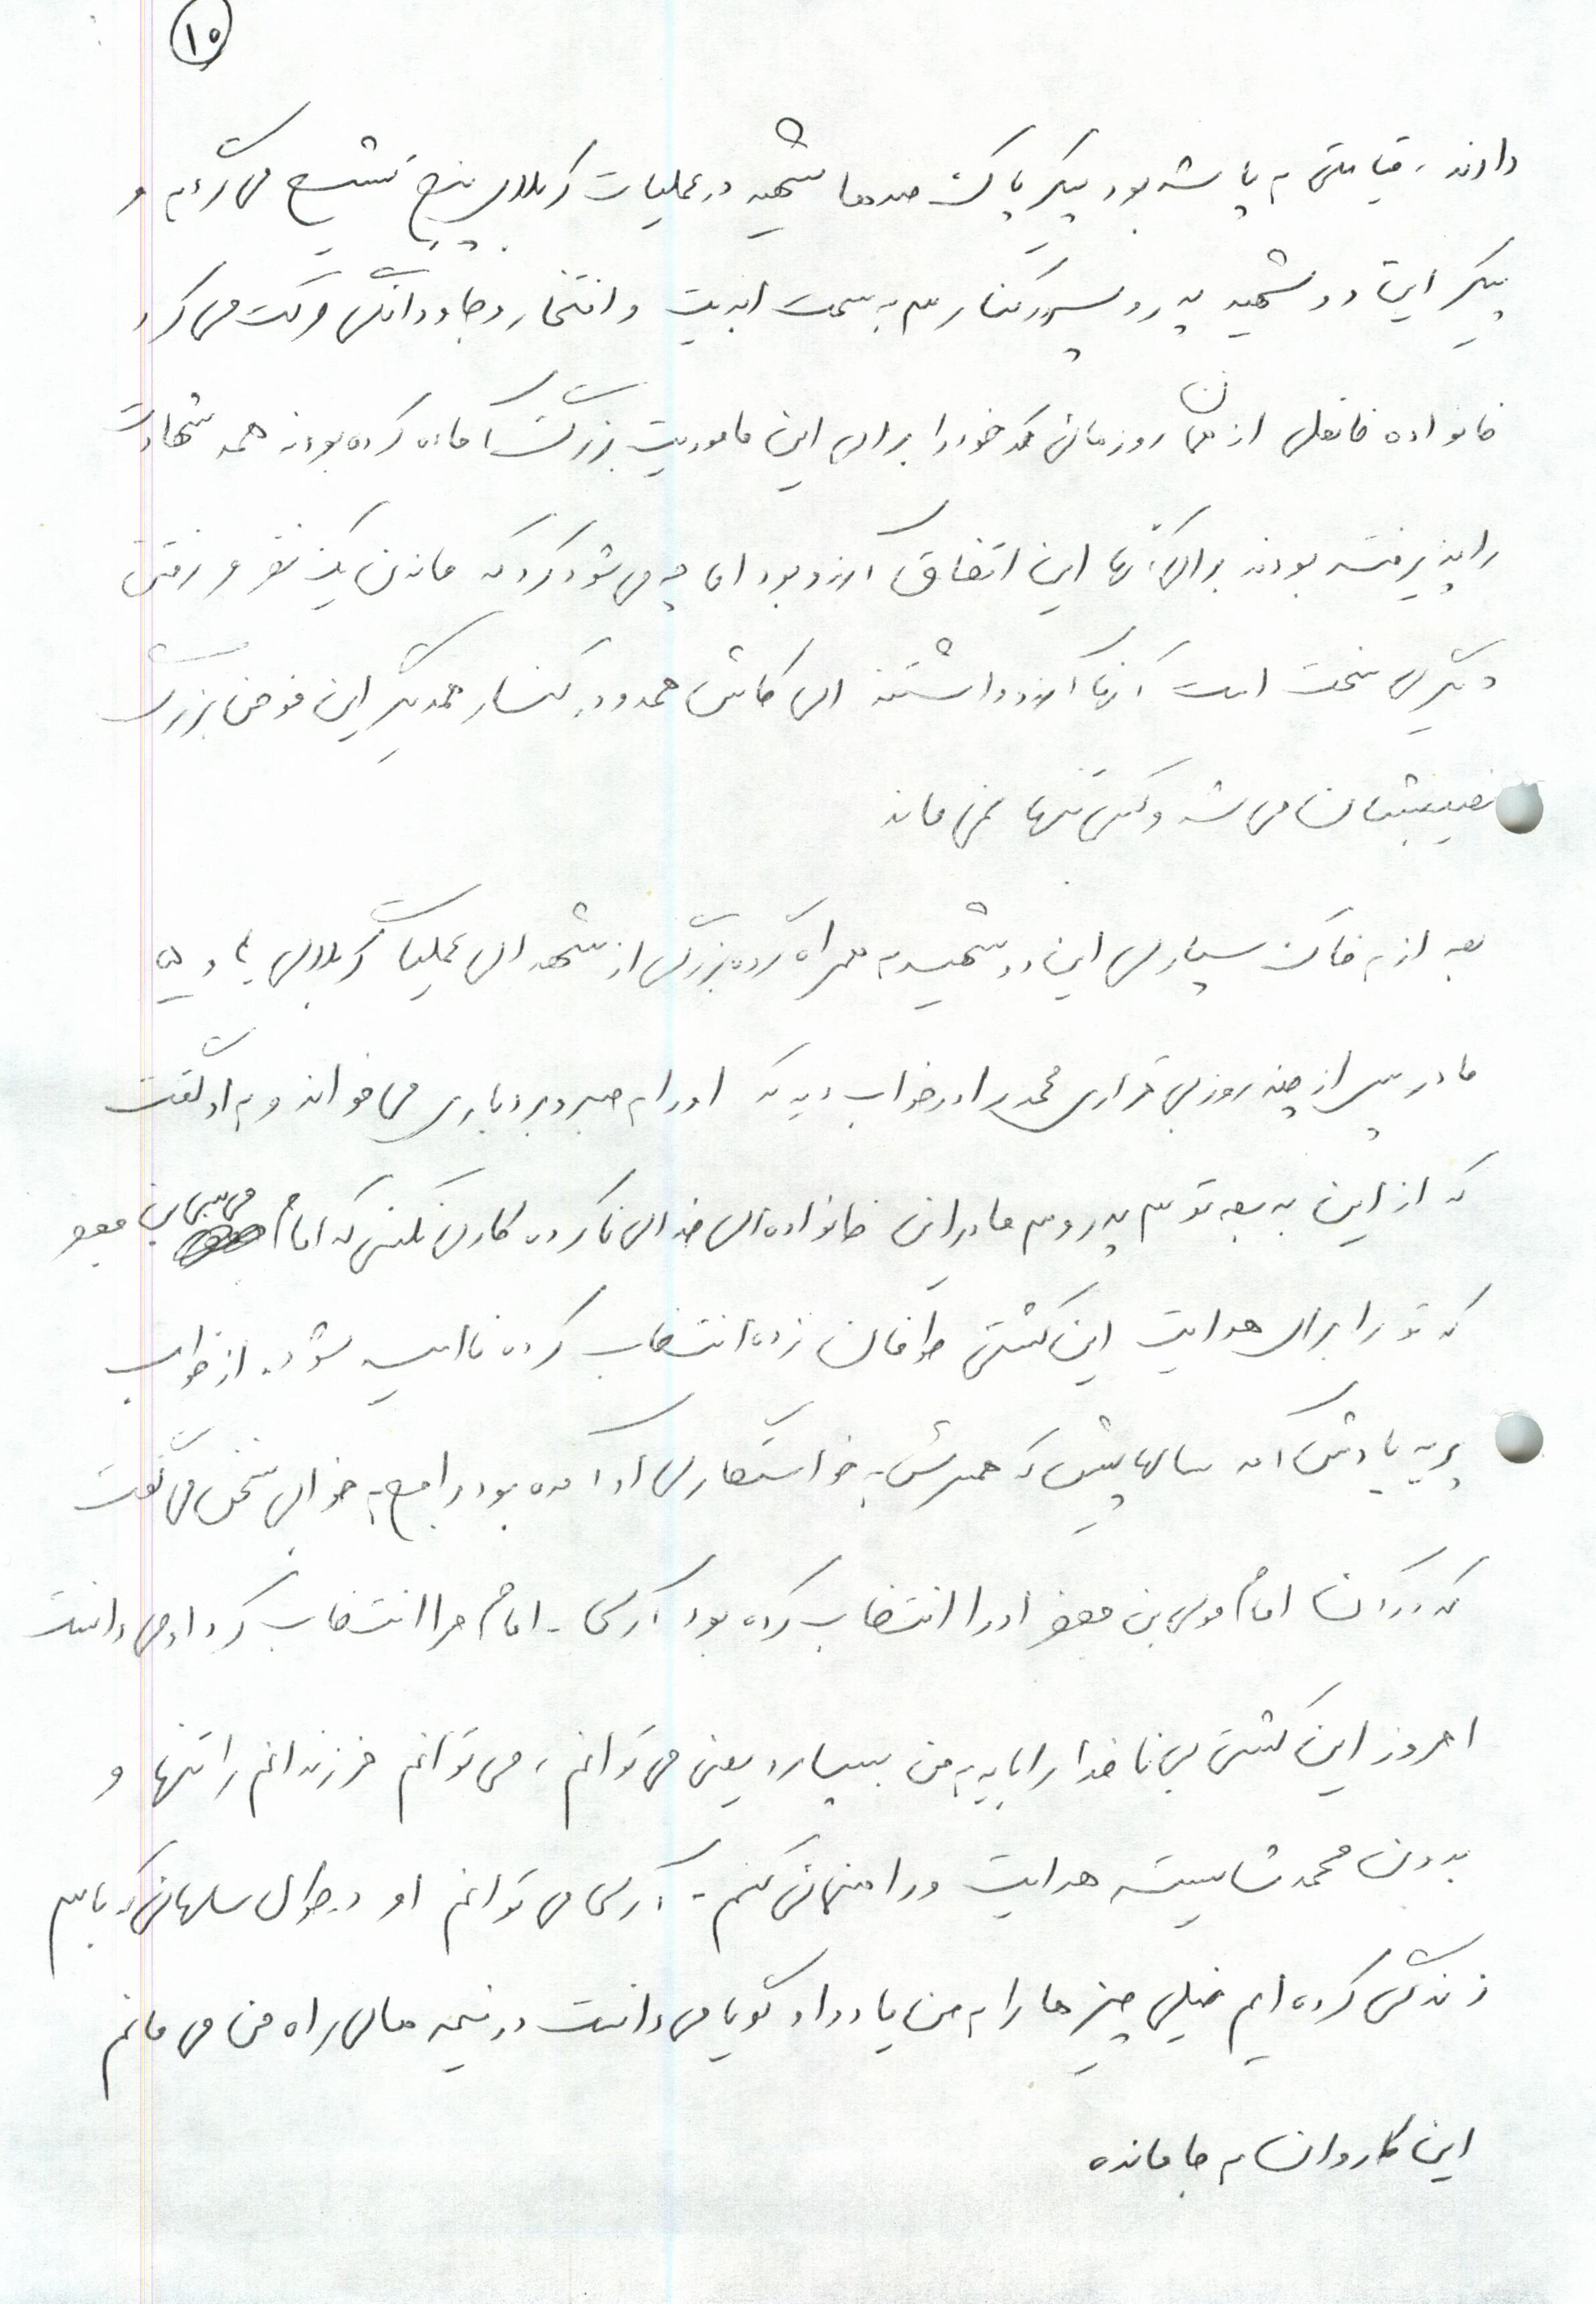 ۱۰
دادند، قیامتی به پا شده بود پیکر پاک صدها شهید در عملیات کربلای پنج تشییع می شد و
پیکر این دو شهید پدر و پسر در کنار هم به سمت ابدیت و افتخار و جاودانگی حرکت می کرد
خانواده از همان روزهائی که خود را برای این ماموریت بزرگ آماده کرده بودند همه شهادت
را پذیرفته بودند برای آنها این اتفاق آرزو بود اما چه می شود کرد که ماندن یک نفر و رفتن
دیگری سخت است آنها آرزو داشتند ای کاش همه در کنار همدیگر این فوض بزرگ
نصیبشان می شد و کسی تنها نمی ماند
بعد از به خاک سپاری این دو شهید به همراه گروه بزرگی از شهدای عملیات کربلای ۴ و ۵
مادر پس از چند روز بی قراری محمد را در خواب دید که او را به صبر و بردباری می خواند و به او گفت
که از این به بعد تو هم پدر و هم مادر این خانواده ای خدای ناکرده کاری نکنی که امام موسی بن جعفر
که تو را برای هدایت این کشتی طوفان زده انتخاب کرده ناامید شود. از خواب
پرید یادش آمد سالها پیش که همسرش به خواستگاری او آمده بود راجع به خوابی سخن می گفت
که در آن امام موسی بن جعفر او را انتخاب کرده بود آری - امام مرا انتخاب کرد او می دانست
امروز این کشتی بی ناخدا را باید به من بسپارد یعنی می توانم، می توانم فرزندانم را تنها و
بدون محمد شایسته هدایت و راهنمائی کنم - آری می توانم او در طول سالهائی که با هم
زندگی کرده ایم خیلی چیزها را به من یاد داد گویا می دانست در نیمه های راه من می مانم
این کاروان به جا مانده